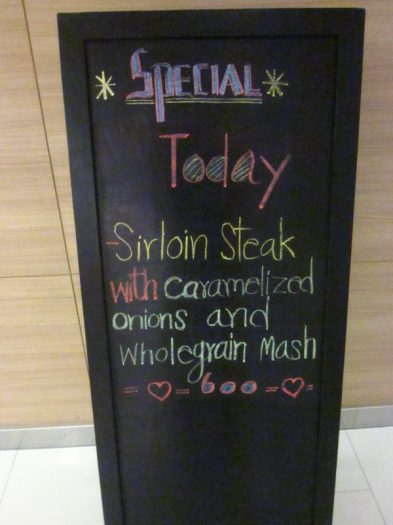 * SPECIAL *
Today
-Sirloin Steak
with caramelized
onions and
wholegrain Mash
= ♡ = 600 = ♡ =